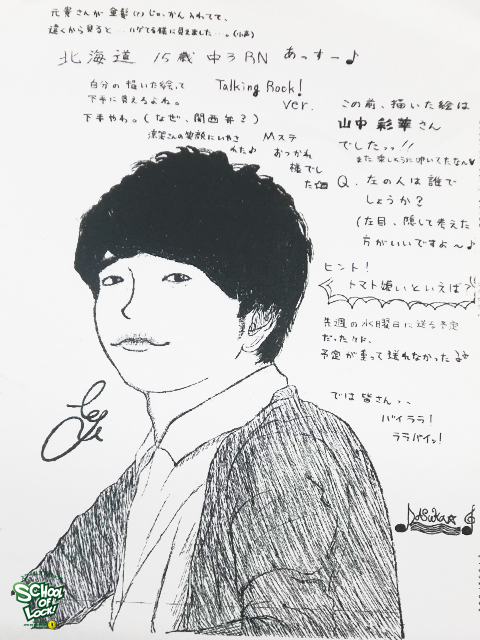 元貴さんが金髪(?)じゃかん入れてて、
遠くから見ると…ハゲてる様に見えました…。(小声)
北海道 15歳 中3 RN あっすー♪
自分の描いた絵って
下手に見えるよね。
下手やわ。(なぜ、関西弁?)
Talking Rock!
ver.
涼架さんの笑顔にいやさ
れた♪
Mステ
おつかれ
様でし
た
この前、描いた絵は
山中彩華さん
でした、、!!
また楽しそうに叩いてたなぁ
Q. 左の人は誰で
しょうか?
(左目、隠して考えた
方がいいですよ〜♪
ヒント!
トマト嫌いといえば?
先週の水曜日に送る予定
だったけど、
予定が重って送れなかった
では皆さん、、
バイララ!
ララバイっ!
SCHOOL
OF
LOCK!